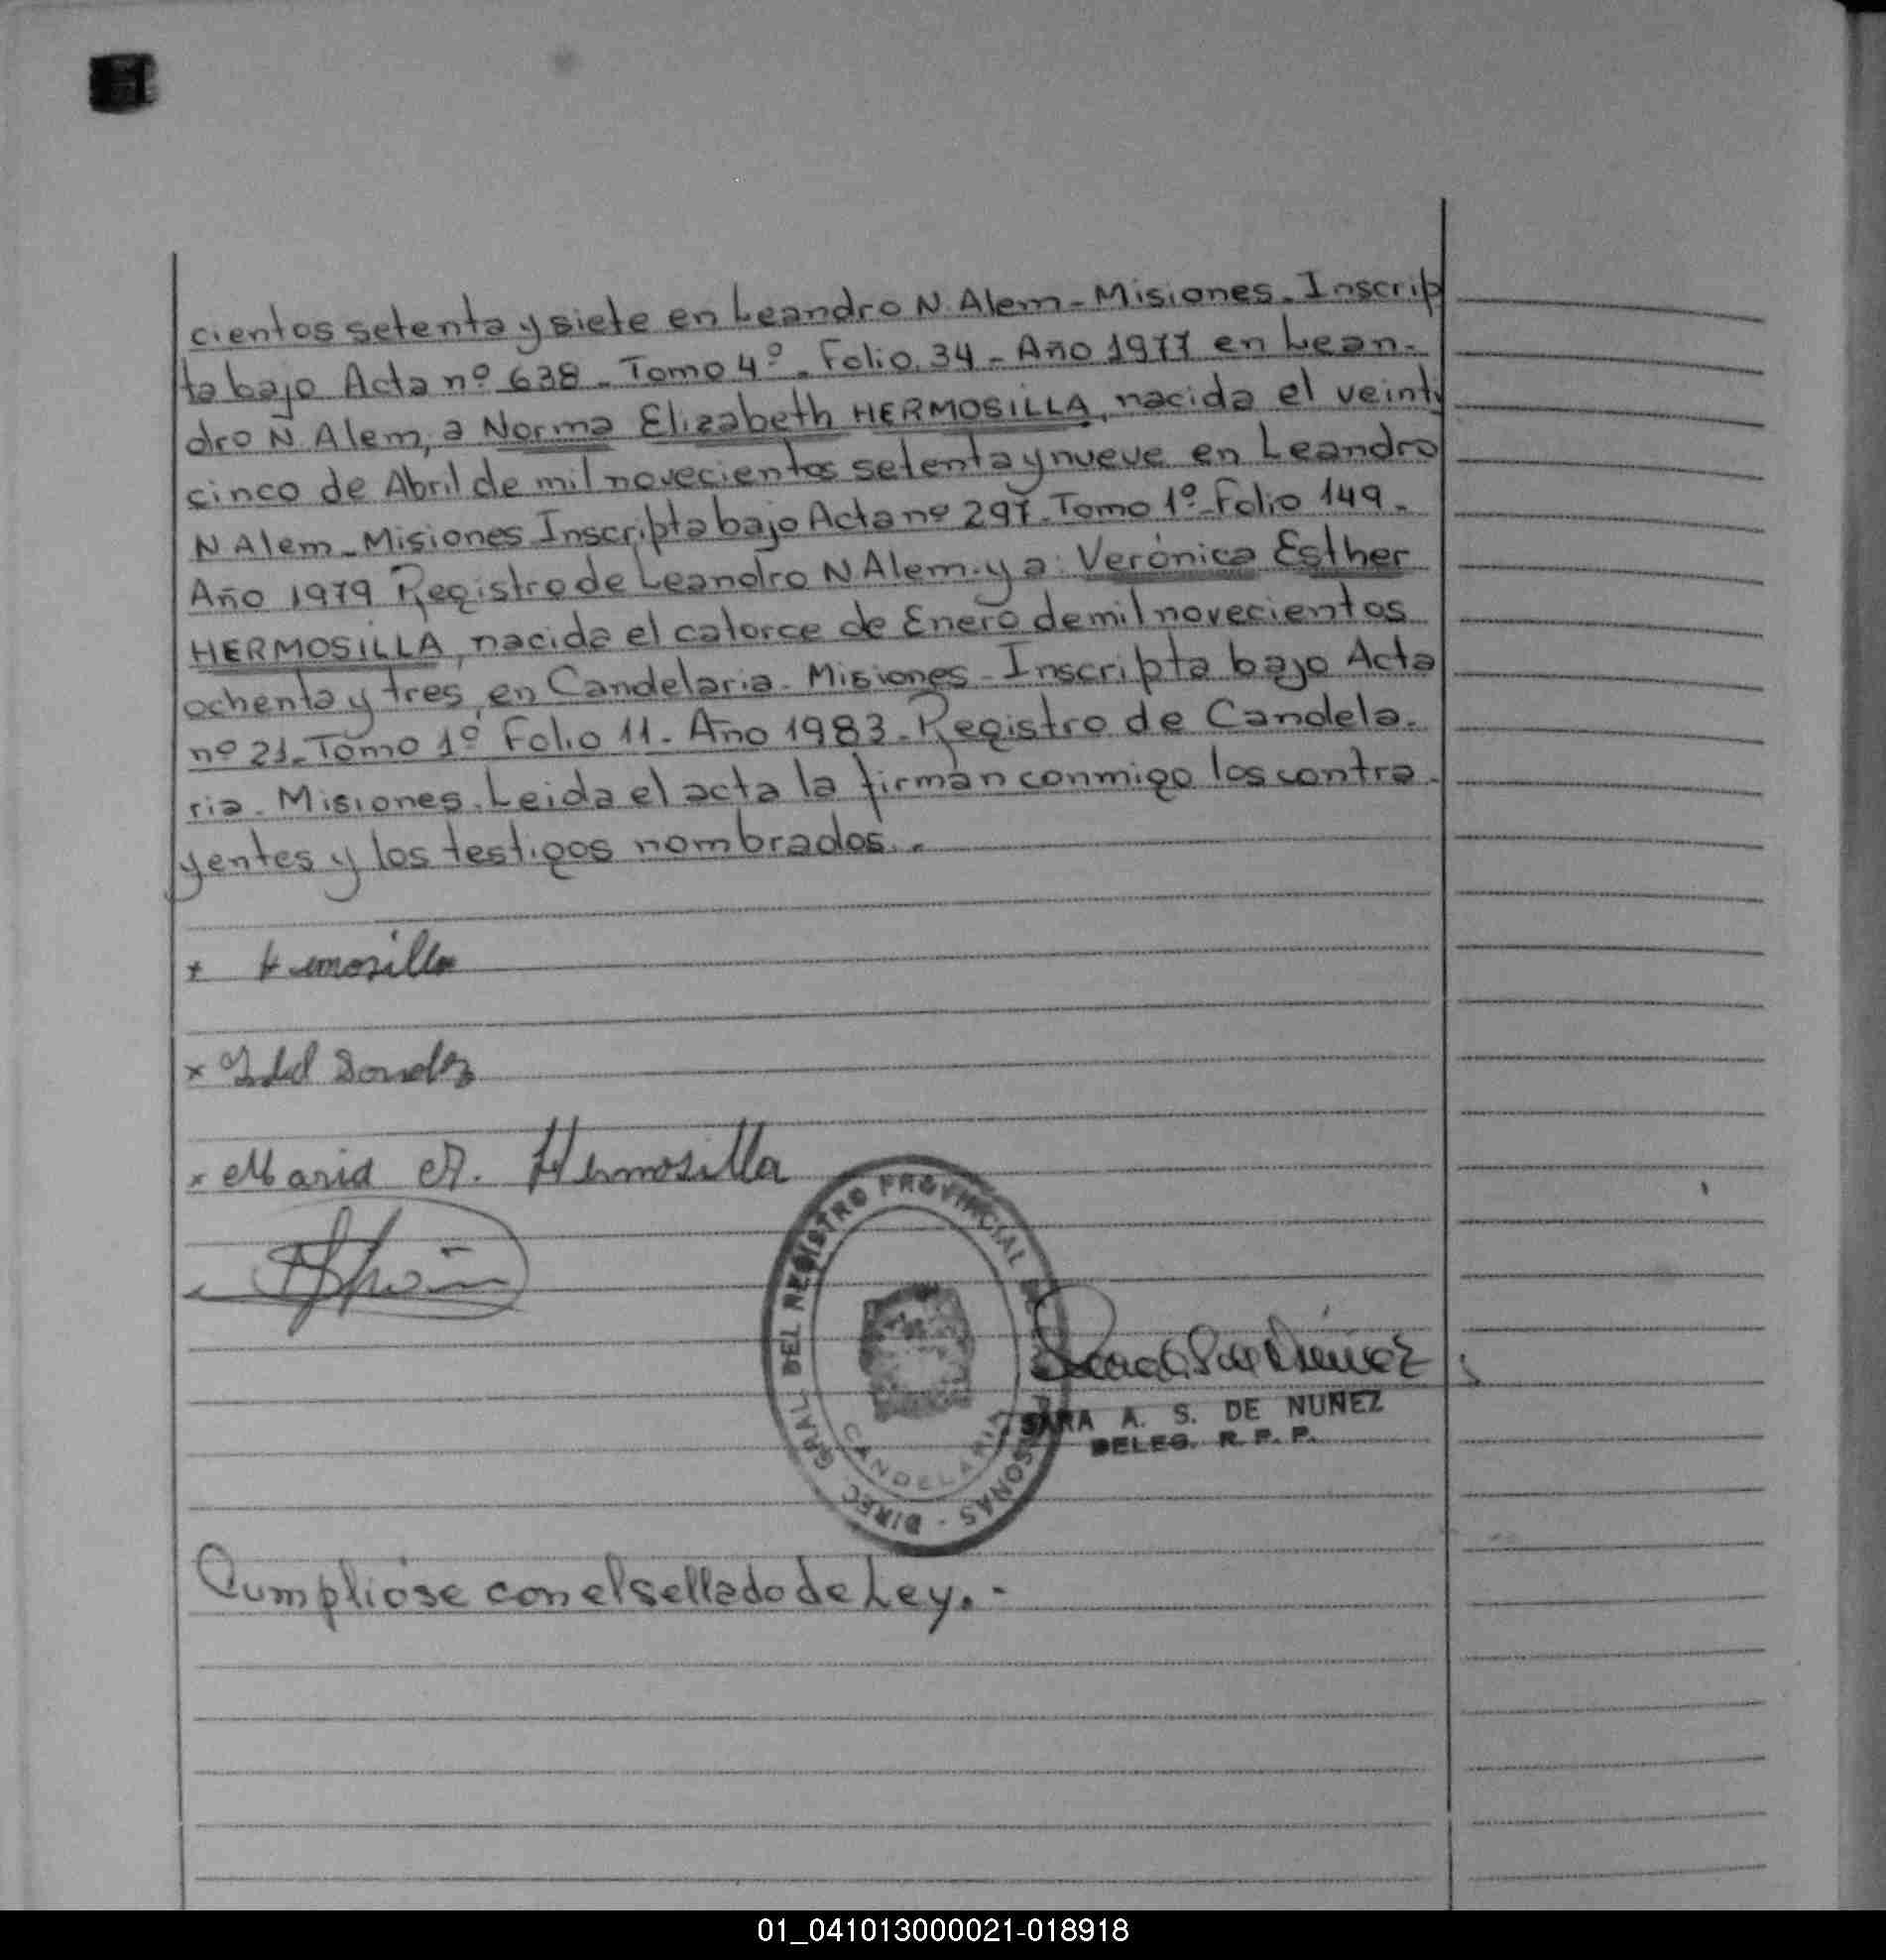 cientos setenta y siete en Leandro N. Alem - Misiones. Inscrip
ta bajo Acta nº 638 - Tomo 4º - Folio 34 - Año 1977 en Lean-
dro N. Alem, a Norma Elizabeth HERMOSILLA, nacida el veinti
cinco de Abril de mil novecientos setenta y nueve en Leandro
N Alem - Misiones Inscripta bajo Acta nº 297. Tomo 1º - Folio 149 -
Año 1979 Registro de Leandro N Alem. y a: Verónica Esther
HERMOSILLA, nacida el catorce de Enero de mil novecientos
ochenta y tres, en Candelaria - Misiones - Inscripta bajo Acta
nº 21 - Tomo 1º Folio 11 - Año 1983 - Registro de Candela-
ria - Misiones. Leida el acta la firman conmigo los contra-
yentes y los testigos nombrados. -
x Hermosilla
x
x Maria A. Hermosilla
DIREC. GRAL DEL REGISTRO PROVINCIAL DE PERSONAS -
CANDELARIA
SARA A. S. DE NUÑEZ
DELEG. R. P. P.
Cumpliose con el sellado de Ley. -
01_041013000021-018918